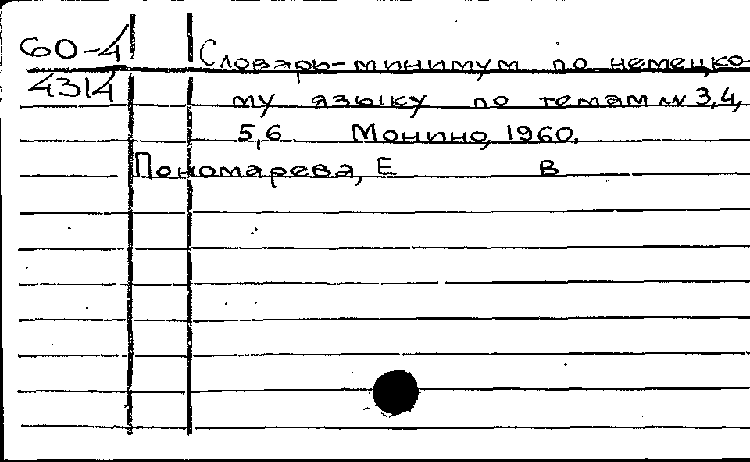 60-4
4314
Словарь-минимум по немецко-
му языку по темам № 3,4,
5,6 Монино, 1960.
Пономарева, Е В